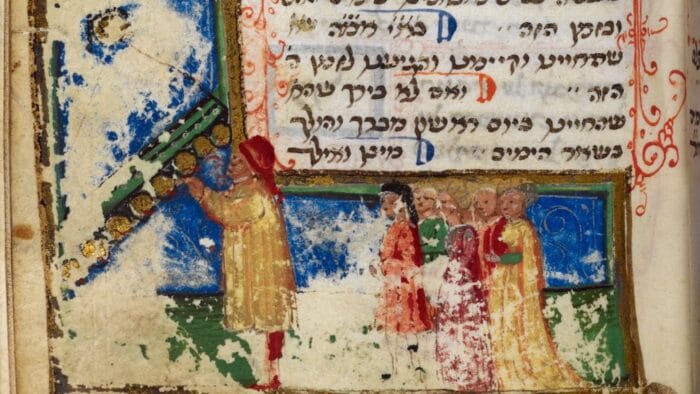 ובזמן הזה בא״י אמ״ה
שהחיינו וקיימנו והגיענו לזמן ה
הזה ואם לא בירך שהח
שהחיינו ביום ראשון מברך והולך
בשאר הימים מיכן ואילך